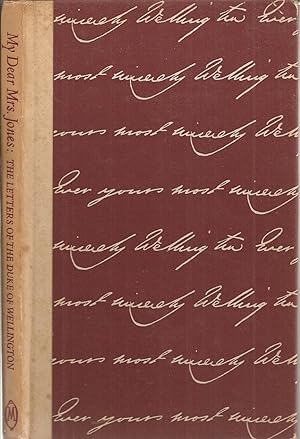 My Dear Mrs. Jones: THE LETTERS OF THE DUKE OF WELLINGTON
M
sincerely Wellington Ever
yours most sincerely Well
Ever yours most sincerely
sincerely Wellington Ever
most sincerely Wellington
yours most sincerely Well
Ever yours most sincerely